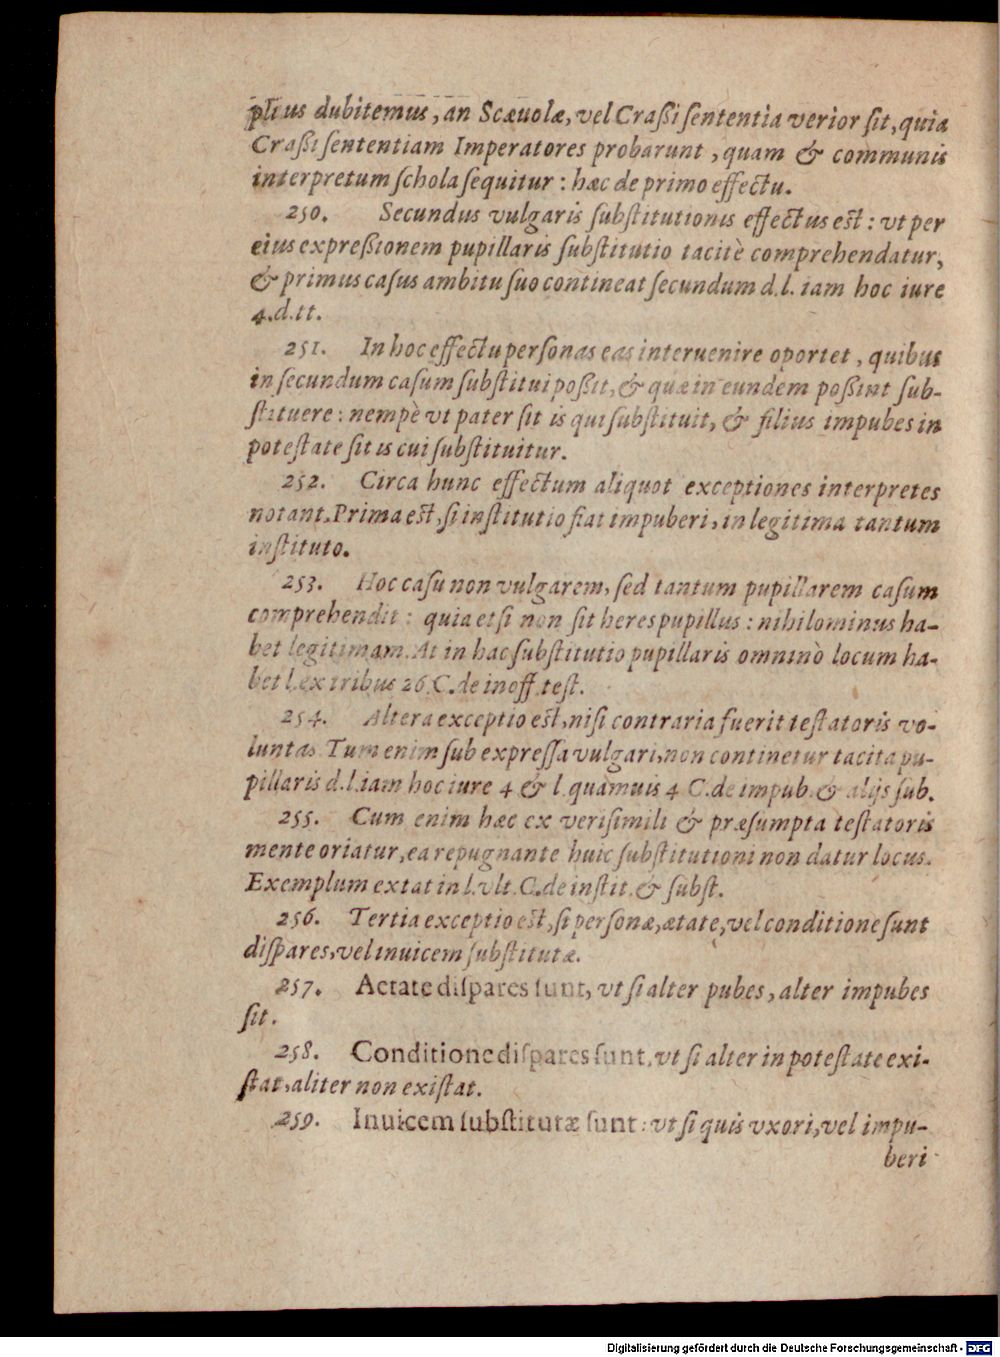 plius dubitemus, an Scæuolæ, vel Craßi sententia verior sit, quia
Craßi sententiam Imperatores probarunt, quam & communis
interpretum schola sequitur: hæc de primo effectu.
250. Secundus vulgaris substitutionis effectus est: vt per
eius expreßionem pupillaris substitutio tacitè comprehendatur,
& primus casus ambitu suo contineat secundum d.l. iam hoc iure
4.d.tt.
251. In hoc effectu personas eas interuenire oportet, quibus
in secundum casum substitui poßit, & quæ in eundem poßint sub-
stituere: nempè vt pater sit is qui substituit, & filius impubes in
potestate sit is cui substituitur.
252. Circa hunc effectum aliquot exceptiones interpretes
notant. Prima est, si institutio fiat impuberi, in legitima tantum
instituto.
253. Hoc casu non vulgarem, sed tantum pupillarem casum
comprehendit: quia etsi non sit heres pupillus: nihilominus ha-
bet legitimam. At in hac substitutio pupillaris omninò locum ha-
bet l. ex tribus 26 C. de inoff. test.
254. Altera exceptio est, nisi contraria fuerit testatoris vo-
luntas. Tum enim sub expressa vulgari, non continetur tacita pu-
pillaris d.l. iam hoc iure 4 & l. quamuis 4 C. de impub. & alijs sub.
255. Cum enim hæc ex verisimili & præsumpta testatoris
mente oriatur, ea repugnante huic substitutioni non datur locus.
Exemplum extat in l. vlt. C. de instit. & subst.
256. Tertia exceptio est, si personæ, ætate, vel conditione sunt
dispares, vel inuicem substitutæ.
257. Aetate dispares sunt, vt si alter pubes, alter impubes
sit.
258. Conditione dispares sunt, vt si alter in potestate exi-
stat, aliter non existat.
259. Inuicem substitutæ sunt: vt si quis vxori, vel impu-
beri
Digitalisierung gefördert durch die Deutsche Forschungsgemeinschaft - DFG